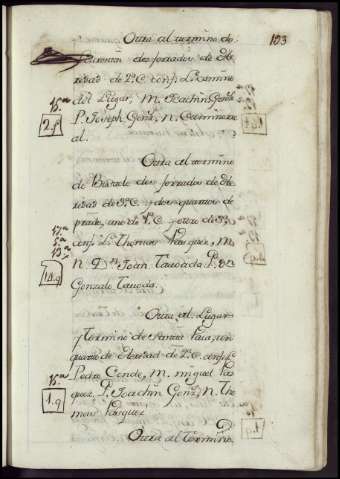 103
Otra al termino de
dos ferrados de He
redad de 2ª C. conf. L. Camino
del Lugar, M. Joachin Gonz.
P. Joseph Gonz. N. Camino R
al.
15.ª
2.f
Otra al termino
de dos ferrados de He
redad de 3ª C. y dos quartos de
prado, uno de 1ª C. y otro de 3ª
conf. L. Thomas Vazquez, M
y N. D.n Juan Taboada P.
Gonzalo Taboada.
17.ª
5.ª
13.ª
Otra al Lugar
y Termino de Santa un
quarto de Heredad de 2ª C. conf. L
Pedro Conde, M. Miguel Vaz
quez, P. Joachin Gonz. N. Tho
mas Vazquez
15.ª
1.q
Otra al Termino